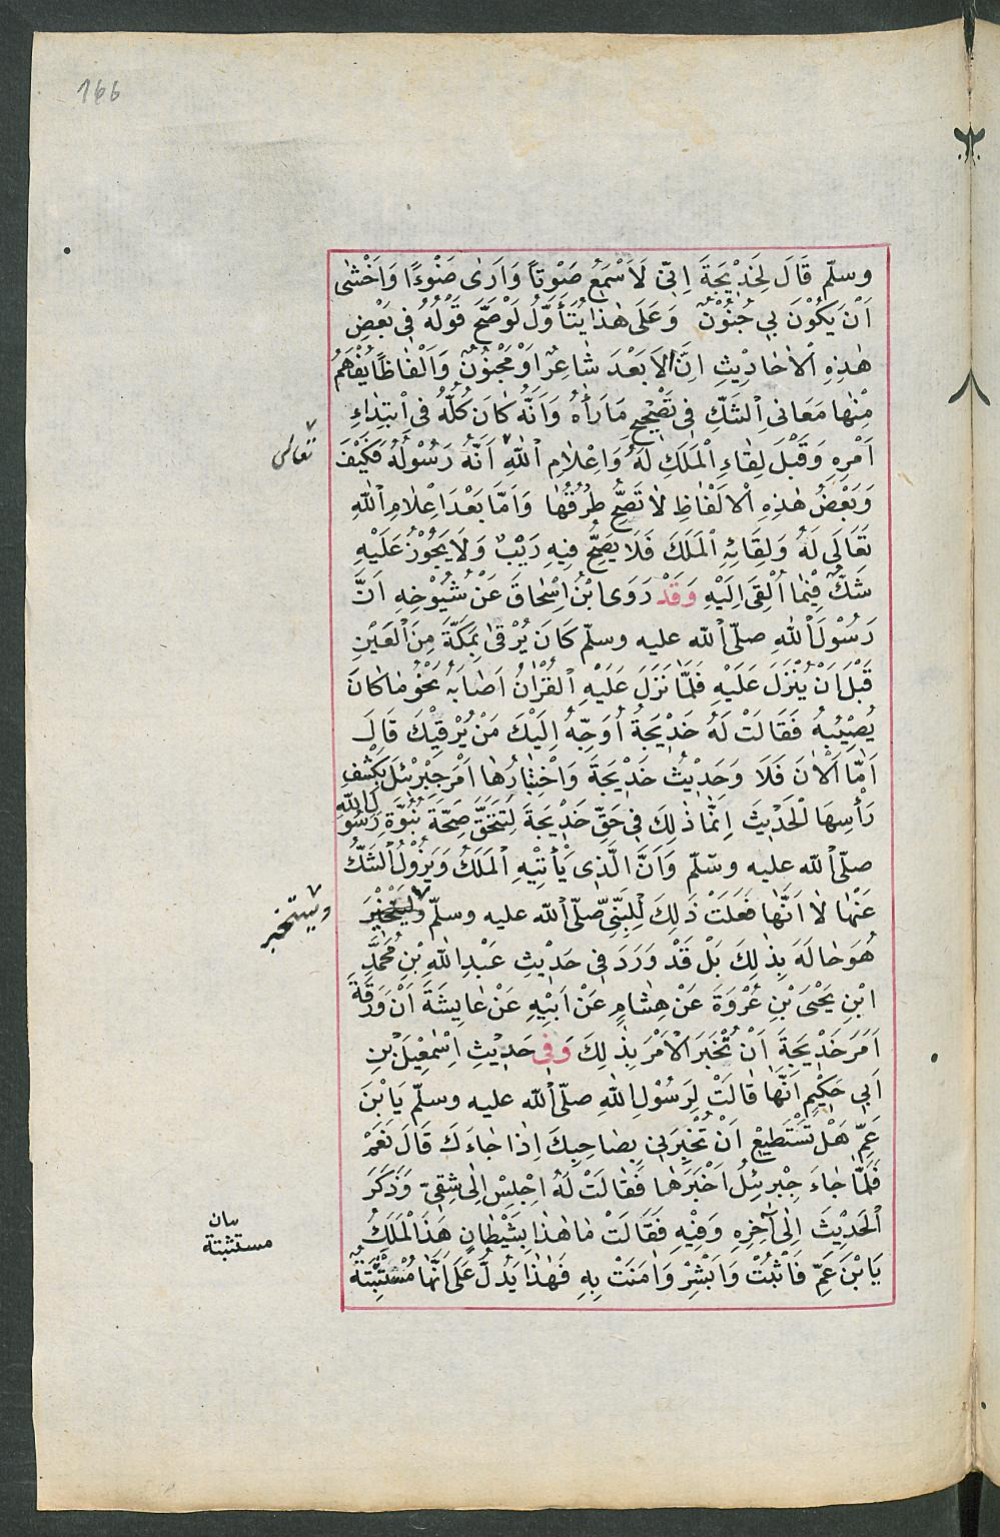 166
وسلّم قَالَ لِخَدْيِجَةَ اِنّى لَاَسْمَعُ صَوْتاً وَاَرٰى ضَوْءًا وَاَخْشٰى
اَنْ يَكُوْنَ بِى جُنُوْنٌ وَعَلٰى هٰذَا يُتَأَوَّلُ لَوْصَحَّ قَوْلُهُ فِى بَعْضِ
هٰذِهِ اْلاَحَادِيْثِ اِنَّ الاَبَعْدَ شَاعِرٌ اَوْ مَجْنُوْنٌ وَاَلْفَاظًا يُفْهَمُ
مِنْهَا مَعَانِى الشَّكِّ فِى تَصْحِيْحِ مَارَأٰهُ وَاَنَّهُ كَانَ كُلُّهُ فِى ابْتِدَاءِ
اَمْرِهِ وَقَبْلَ لِقَاءِ الْمَلَكِ لَهُ وَاِعْلَامِ اللّٰهِ اَنَّهُ رَسُوْلُهُ فَكَيْفَ
تعالى
وَبَعْضُ هٰذِهِ اْلاَلْفَاظِ لاَ تَصِحُّ طُرُقُهَا وَاَمَّا بَعْدَ اِعْلَامِ اللّٰهِ
تَعَالَى لَهُ وَلِقَائِهِ الْمَلَكَ فَلَا يَصِحُّ فِيهِ رَيْبٌ وَلَا يَجُوْزُ عَلَيْهِ
شَكٌّ فِيْمَا اُلْقِىَ اِلَيْهِ وَقَدْ رَوَى ابْنُ اِسْحَاقَ عَنْ شُيُوْخِهِ اَنَّ
رَسُوْلَ اللّٰهِ صلّى اللّه عليه وسلّم كَانَ يُرْقٰى بِمَكَّةَ مِنَ الْعَيْنِ
قَبْلَ اَنْ يُنْزَلَ عَلَيْهِ فَلَمَّا نَزَلَ عَلَيْهِ الْقُرْاٰنُ اَصَابَهُ نَحْوُ مَاكَانَ
يُصِيْبُهُ فَقَالَتْ لَهُ خَدْيِجَةُ اُوَجِّهُ اِلَيْكَ مَنْ يُرْقِيْكَ قَالَ
اَمَّا اْلاٰنَ فَلَا وَحَدِيْثُ خَدْيِجَةَ وَاخْتِبَارُهَا اَمْرَ جِبْرِئِلَ بِكَشْفِ
رَأْسِهَا الْحَدِيْثَ اِنَّمَا ذٰلِكَ فِى حَقِّ خَدْيِجَةَ لِتَتَحَقَّقَ صِحَّةَ نُبُوَّةِ رَسُولِ اللّٰهِ
صلّى اللّه عليه وسّلم وَاَنَّ الَّذِى يَأْتِيْهِ الْمَلَكُ وَيَزُوْلُ الشَّكُّ
عَنْهَا لاَ اَنَّهَا فَعَلَتْ ذٰلِكَ لِلنَّبِىّ صلّى اللّه عليه وسلّم وليختبر
ويستخبر
هُوَ حَالَهُ بِذٰلِكَ بَلْ قَدْ وَرَدَ فِى حَدِيْثِ عَبْدِ اللّٰهِ بْنِ مُحَمَّدِ
ابْنِ يَحْيٰى بْنِ عُرْوَةَ عَنْ هِشَامٍ عَنْ اَبِيْهِ عَنْ عَايِشَةَ اَنَّ وَرَقَةَ
اَمَرَ خَدْيِجَةَ اَنْ تُخْبَرَ اْلاَمْرَ بِذٰلِكَ وَفِى حَدِيْثِ اِسْمٰعِيْلَ بْنِ
اَبِى حَكِيْمٍ اَنَّهَا قَالَتْ لِرَسُوْلِ اللّٰهِ صلّى اللّه عليه وسلّم يَا بْنَ
عَمِّ هَلْ تَسْتَطِيْعُ اَنْ تُخْبِرَنِى بِصَاحِبِكَ اِذَا جَاءَكَ قَالَ نَعَمْ
فَلَمَّا جَاءَ جِبْرِئِلُ اَخْبَرَهَا فَقَالَتْ لَهُ اجْلِسْ اِلٰى شِقِىّ وَذَكَرَ
الْحَدِيْثَ اِلٰى اٰخِرِهِ وَفِيْهِ فَقَالَتْ مَا هٰذَا بِشَيْطَانٍ هٰذَا الْمَلَكُ
يَا بْنَ عَمِّ فَاثْبُتْ وَابْشِرْ وَاٰمَنَتْ بِهِ فَهٰذَا يَدُلُّ عَلَى اَنَّهَا مُسْتَثْبِتَةٌ
بيان
مستثبتة